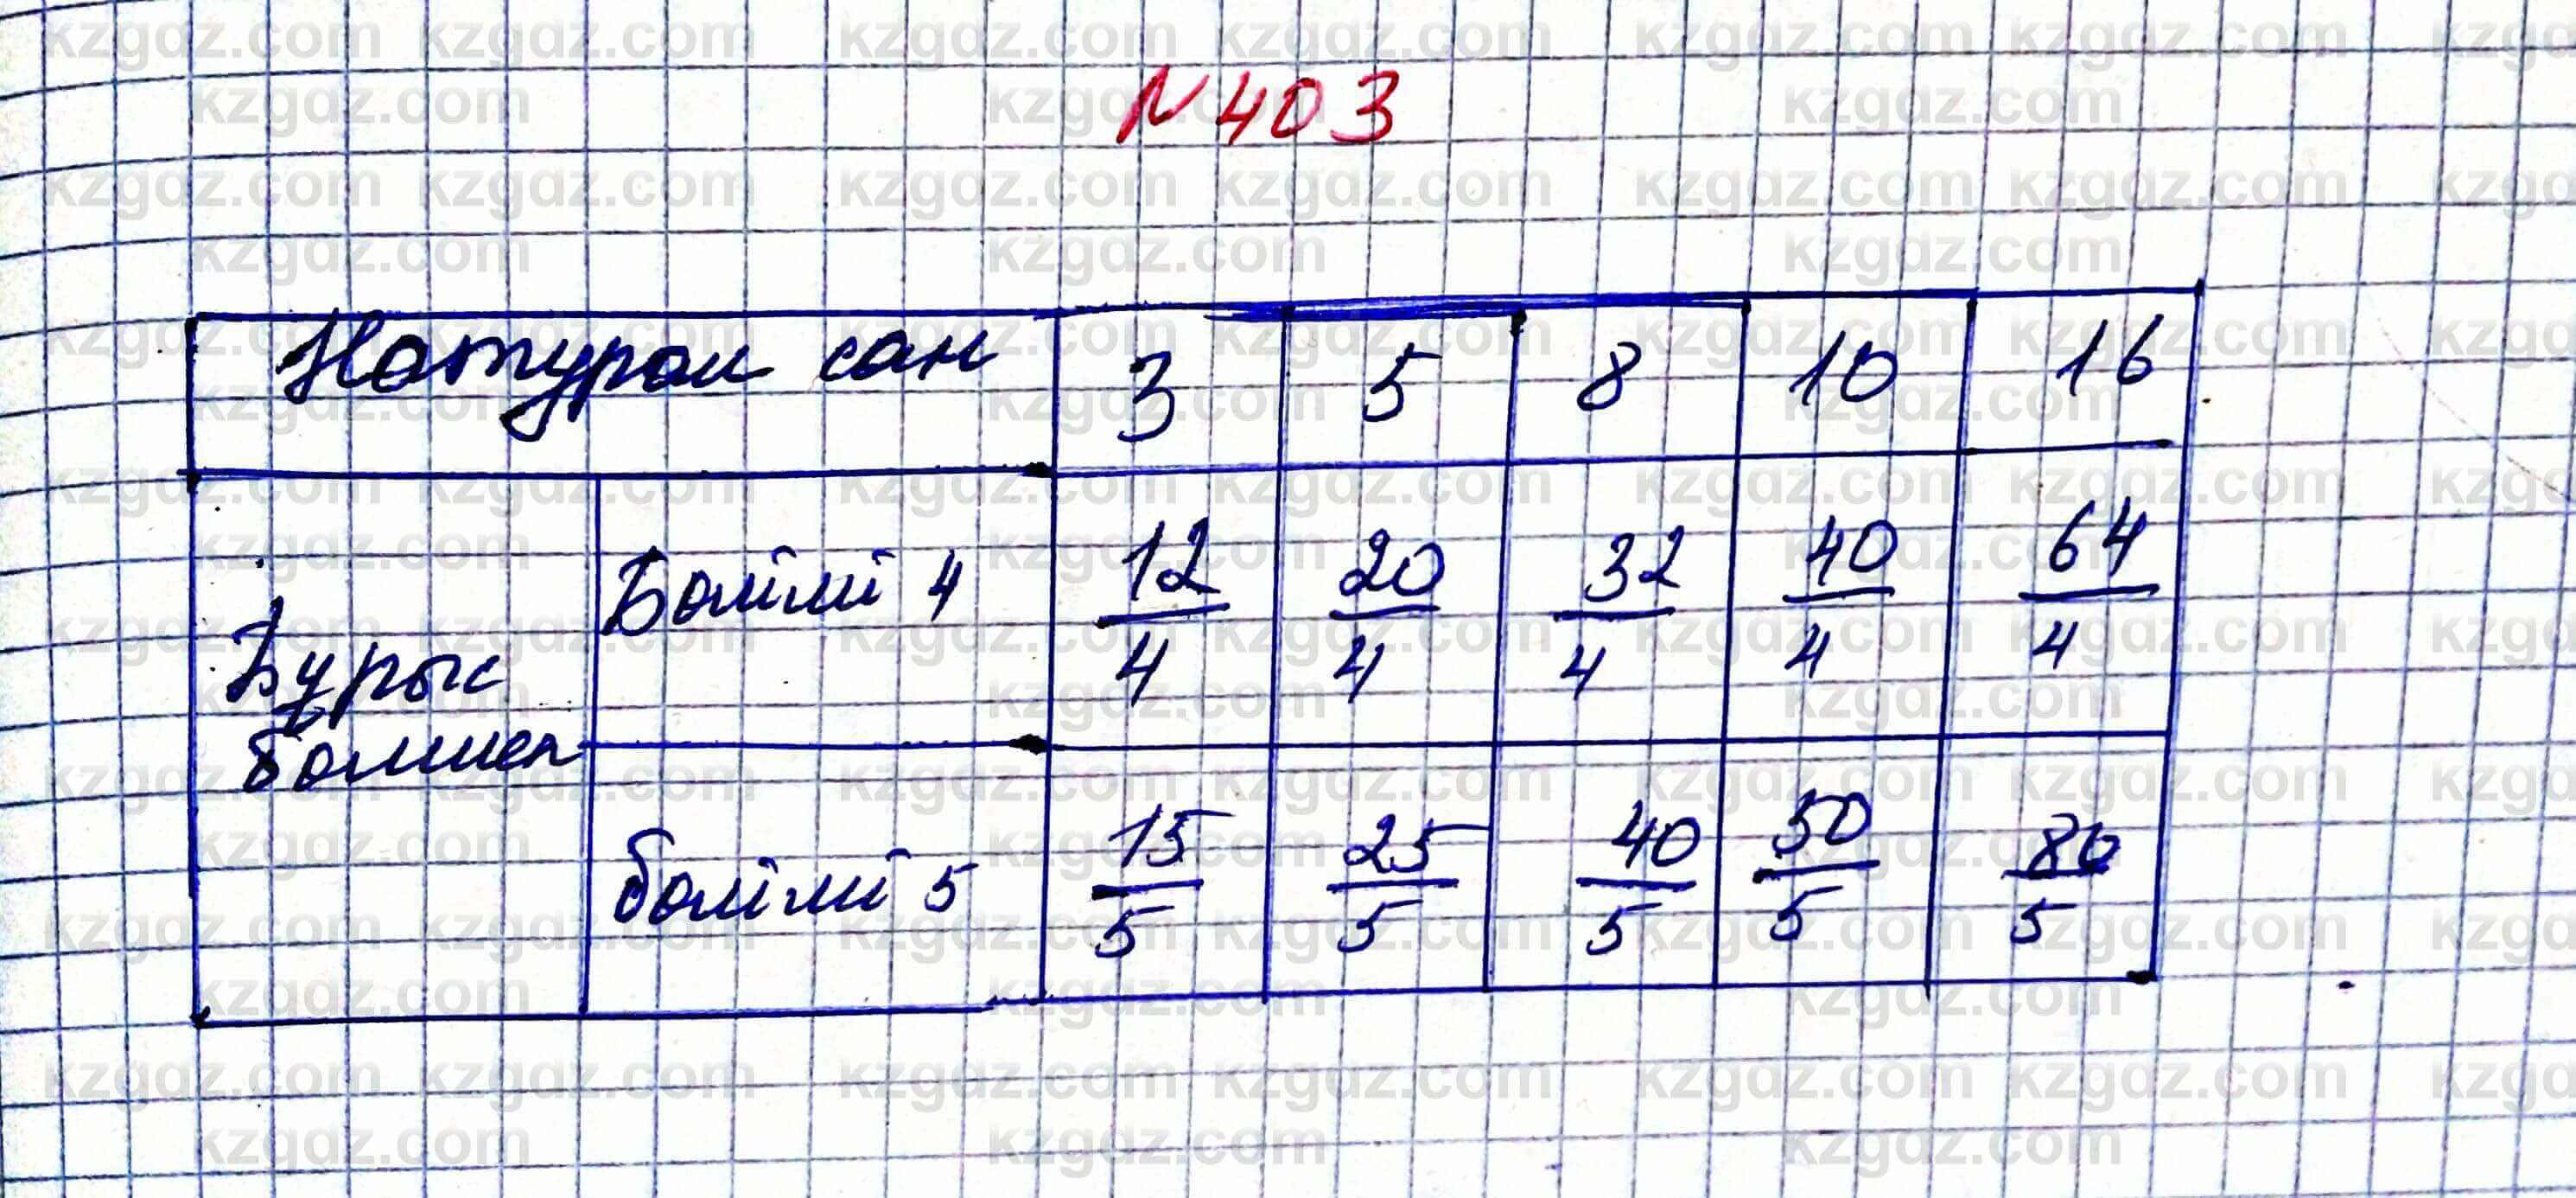 № 403
Натурал сан 3 5 8 10 16
Бұрыс бөлшек
Бөлімі 4 12/4 20/4 32/4 40/4 64/4
бөлімі 5 15/5 25/5 40/5 50/5 80/5
kzgdz.com